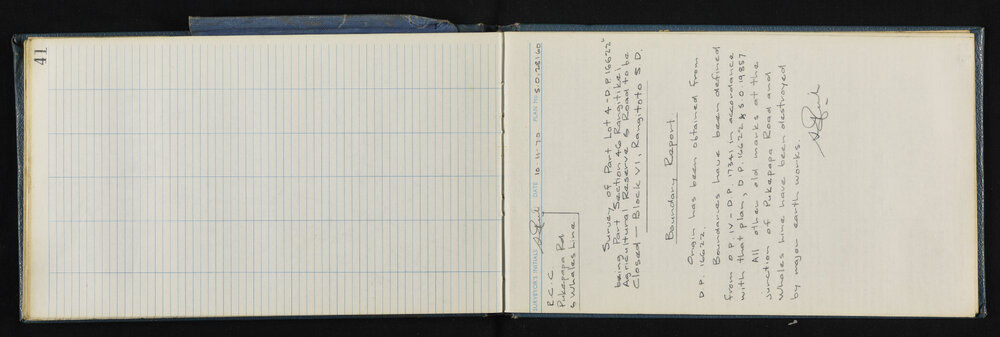 41
SURVEYOR'S INITIALS DATE 10.11.70 PLAN No S.O. 28160
R.C.C
Pukepapa Rd
& Whales Line
Survey of Part Lot 4 - D.P. 16622
being Part Section 46 Rangitikei
Agricultural Reserve & Road to be
Closed — Block VI, Rangitoto S D.
Boundary Report
Origin has been obtained from
D.P. 16622.
Boundaries have been defined
from O.P. IV - D.P. 17341 in accordance
with that plan, D.P. 16622 & S.O 19857
All other old marks at the
junction of Pukepapa Road and
Whales Line have been destroyed
by major earth works.